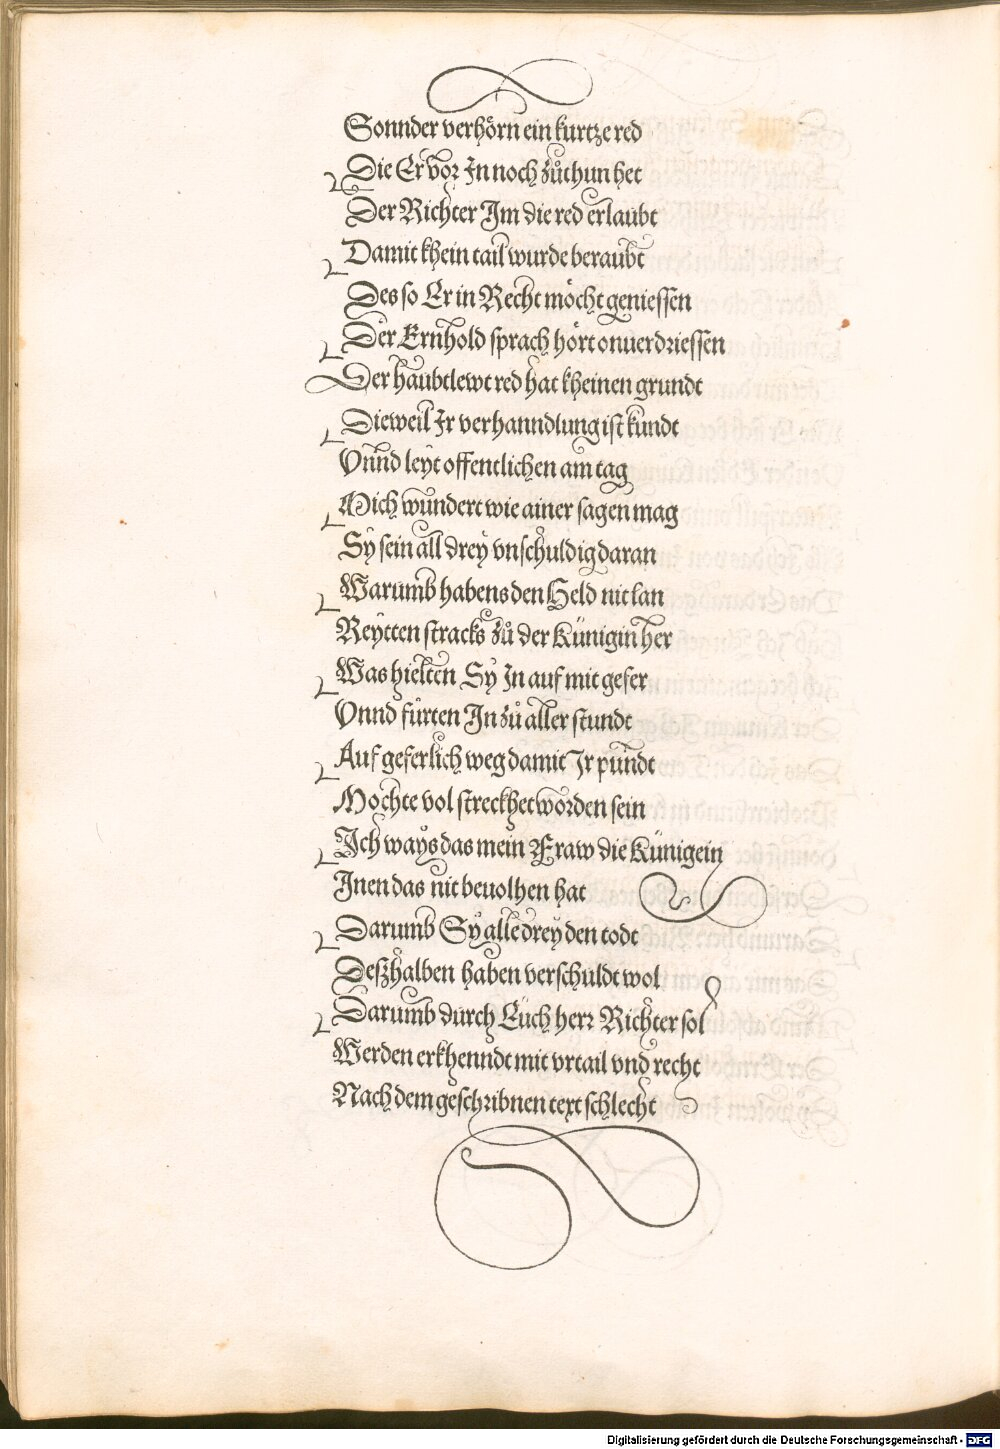 Sonnder verhörn ein kurtze red
Die Er vor In noch zůthun het
Der Richter Im die red erlaubt
Damit khein tail wurde beraubt
Des so Er in Recht möcht geniessen
Der Ernhold sprach hört onuerdriessen
Der haubtlewt red hat kheinen grundt
Dieweil Ir verhanndlung ist kundt
Vnnd leyt offentlichen am tag
Mich wundert wie ainer sagen mag
Sy sein all drey vnschuldig daran
Warumb habens den Held nit lan
Reytten stracks zů der Künigin her
Was hielten Sy In auf mit gefer
Vnnd fürten In zů aller stundt
Auf geferlich weg damit Ir pundt
Mochte vol streckhet worden sein
Ich ways das mein Fraw die Künigein
Inen das nit beuolhen hat
Darumb Sy alle drey den todt
Deszhalben haben verschuldt wol
Darumb durch Euch herr Richter sol
Werden erkhenndt mit vrtail vnd recht
Nach dem geschribnen text schlecht
Digitalisierung gefördert durch die Deutsche Forschungsgemeinschaft - DFG